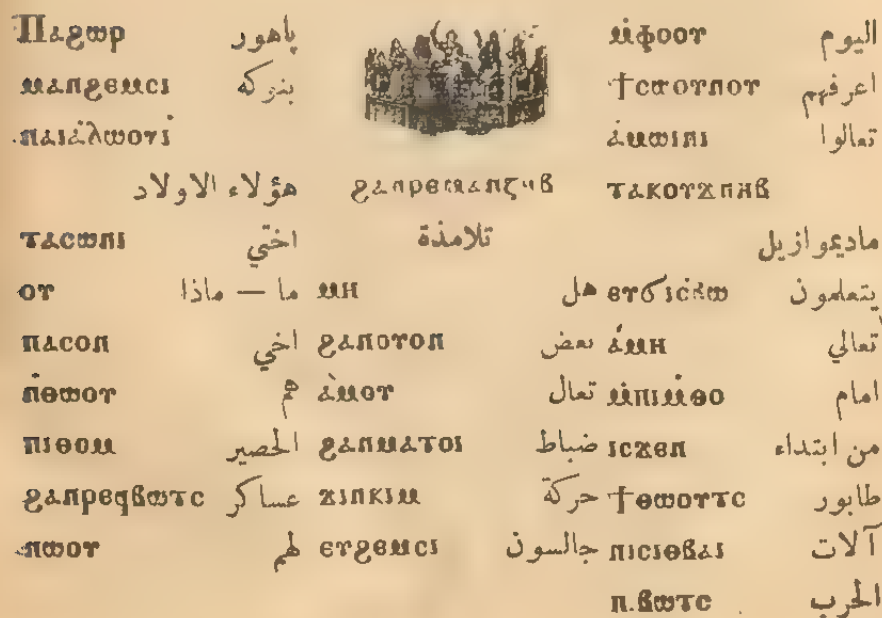 Ⲡⲁϩⲱⲣ پاهور ⲙ̀ⲫⲟⲟⲩ اليوم
ⲙⲁⲛϩⲉⲙⲥⲓ بنزكه ϯⲥⲱⲟⲩⲛⲟⲩ اعرفهم
ⲛⲁⲓⲁ̀ⲗⲱⲟⲩⲓ̀ ⲁ̀ⲙⲱⲓⲛⲓ تعالوا
هؤلاء الاولاد ϩⲁⲛⲣⲉⲙⲁⲛⲍⲏⲃ ⲧⲁⲕⲟⲩϫⲡⲏⲃ
ⲧⲁⲥⲱⲛⲓ اختي تلامذة ماديموازيل
ⲟⲩ ما — ماذا ⲙⲏ هل ⲉⲩϭⲓⲥⲃⲱ يتعلمون
ⲡⲁⲥⲟⲛ اخي ϩⲁⲛⲟⲩⲟⲛ بعض ⲁ̀ⲙⲏ تعالي
ⲛ̀ⲑⲱⲟⲩ هم ⲁ̀ⲙⲟⲩ تعال ⲙ̀ⲡⲓⲙ̀ⲑⲟ امام
ⲡⲓⲑⲟⲙ الحصير ϩⲁⲛⲙⲁⲧⲟⲓ ضباط ⲓⲥϫⲉⲛ من ابتداء
ϩⲁⲛⲣⲉϥⲃⲱⲧⲥ عساكر ϫⲓⲛⲕⲓⲙ حركة ϯⲑⲱⲟⲩⲧⲥ طابور
ⲛⲱⲟⲩ لهم ⲉⲩϩⲉⲙⲥⲓ جالسون ⲡⲓⲥⲓⲑⲃⲁⲓ آلات
ⲡ.ⲃⲱⲧⲥ الحرب